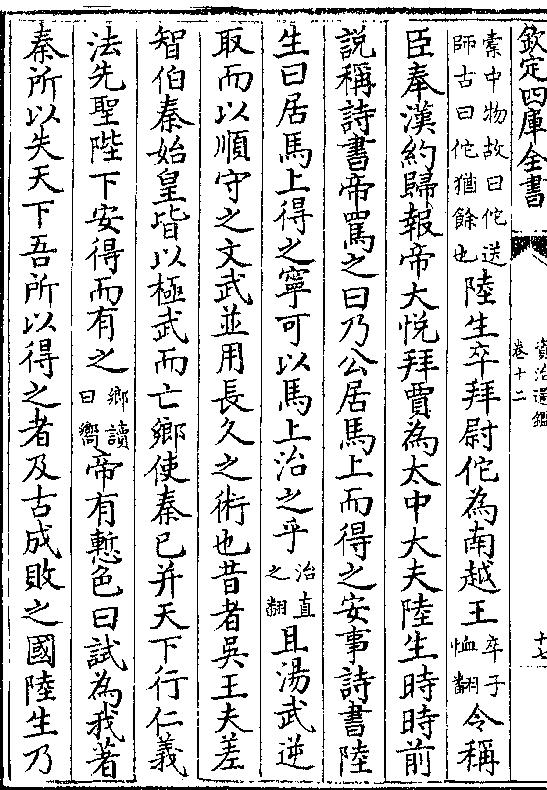 欽定四庫全書
資治通鑑
卷十二
十七
橐中物故曰佗送
師古曰佗猶餘也
陸生卒拜尉佗為南越王
卒子
恤翻
令稱
臣奉漢約歸報帝大悅拜賈為太中大夫陸生時時前
說稱詩書帝罵之曰乃公居馬上而得之安事詩書陸
生曰居馬上得之寧可以馬上治之乎
治直
之翻
且湯武逆
取而以順守之文武並用長久之術也昔者吳王夫差
智伯秦始皇皆以極武而亡鄉使秦已并天下行仁義
法先聖陛下安得而有之
鄉讀
曰嚮
帝有慙色曰試為我著
秦所以失天下吾所以得之者及古成敗之國陸生乃